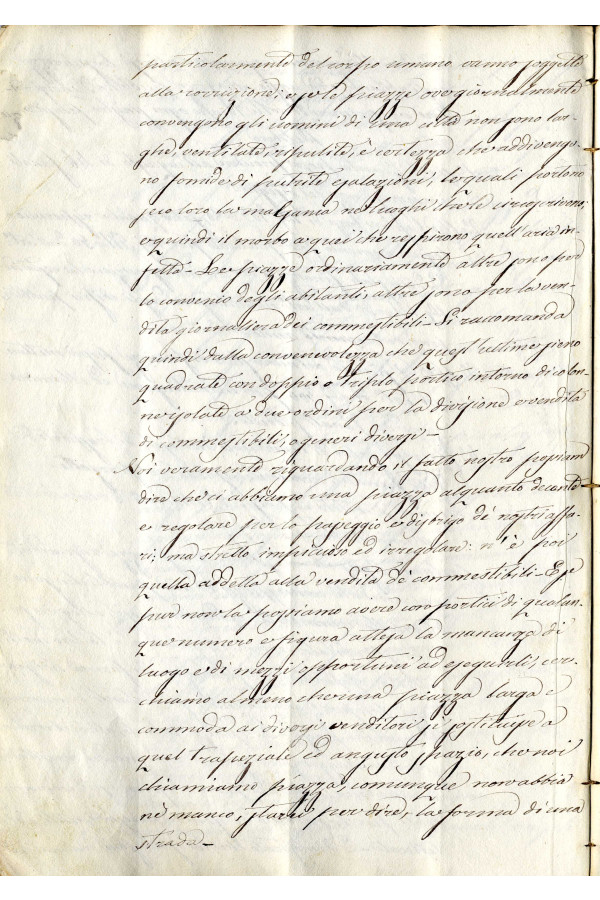 particolarmente del corpo umano vanno soggette
alla corruzione; e se le piazze ove giornalmente
convengono gli uomini di una città non sono lar-
ghe, ventilate, ripulite, è certezza che addivengo-
no fomide di putrite esalazioni, le quali portono
seco loro la malsania ne' luoghi che le circoscrivono,
e quindi il morbo a quei che respirono quell'aria in-
fetta - Le piazze ordinariamente altre sono per
lo convenio degli abitanti, altre sono per la ven-
dita giornaliera dei commestibili - Si raccomanda
quindi dalla convenevolezza che quest'ultime sieno
quadrate con doppio o triplo portico intorno di colon-
ne isolate a due ordini per la divisione e vendita
di commestibili, o generi diversi -
Noi veramente riguardando il fatto nostro possiam
dire che ci abbiamo una piazza alquanto decente
e regolare per lo passeggio e disbrigo de' nostri affa-
ri; ma stretto, impicuoso ed irregolare: n'è poi
quella addetta alla vendita de' commestibili - E se
pur non la possiamo avere con portici di qualun-
que numero e figura attesa la mancanza di
luogo e di mezzi opportuni ad eseguirli, cer-
chiamo almeno che una piazza larga e
commoda ai diversi venditori si sostituisse a
quel trapeziale ed angusto spazio, che noi
chiamiamo piazza, comunque non abbia
nè manco, starei per dire, la forma di una
strada -